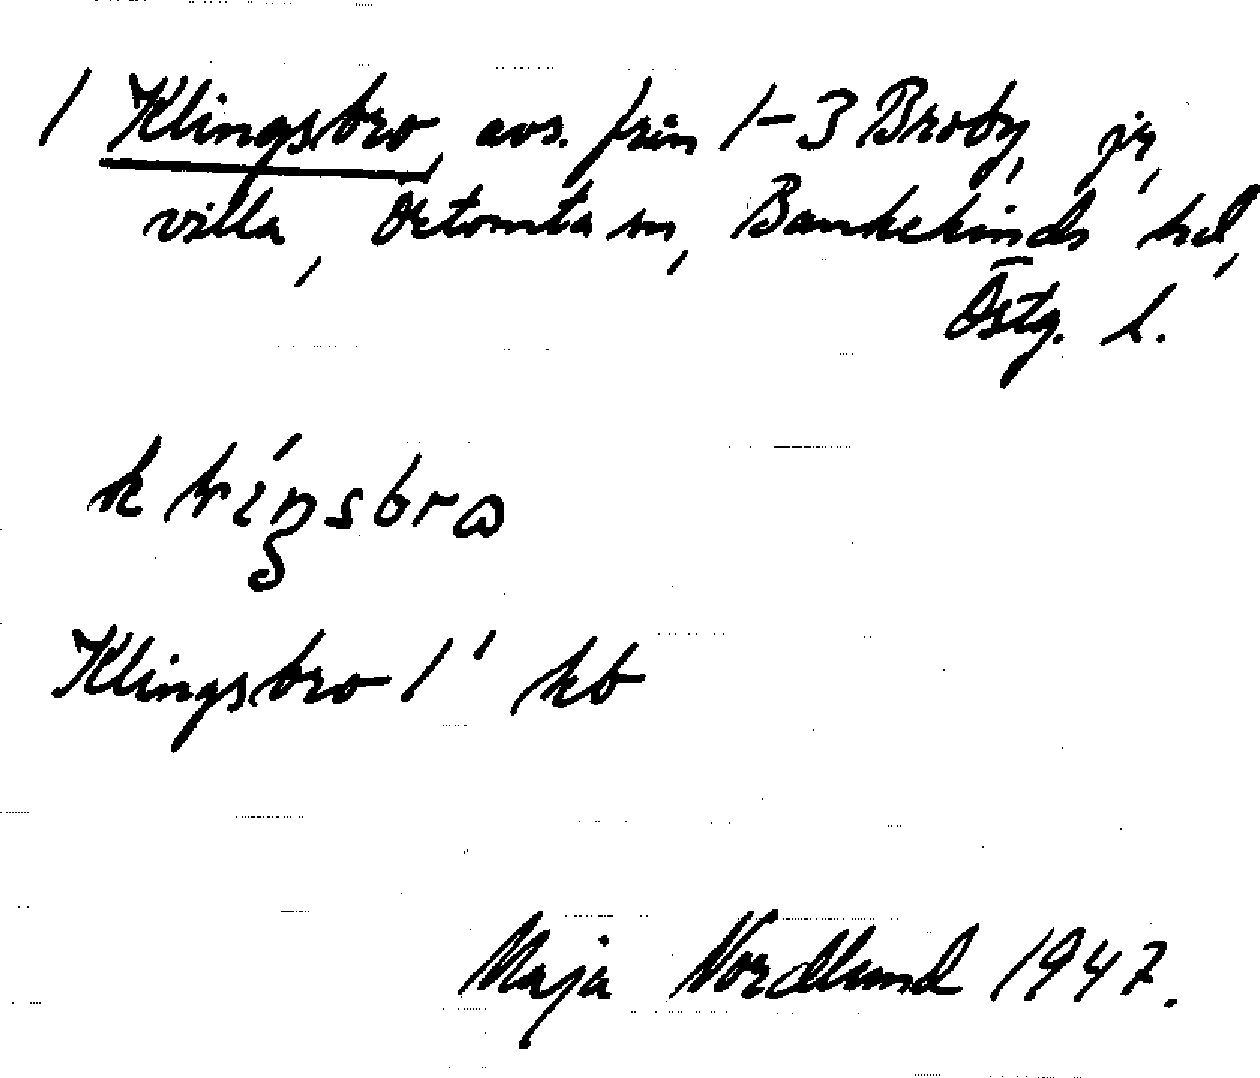 1 Klingsbro, avs. från 1-3 Broby, jr,
villa, Örtomta sn, Bankekinds hd,
Östg. l.
Klingsbro 1' kb
Maja Nordlund 1947.